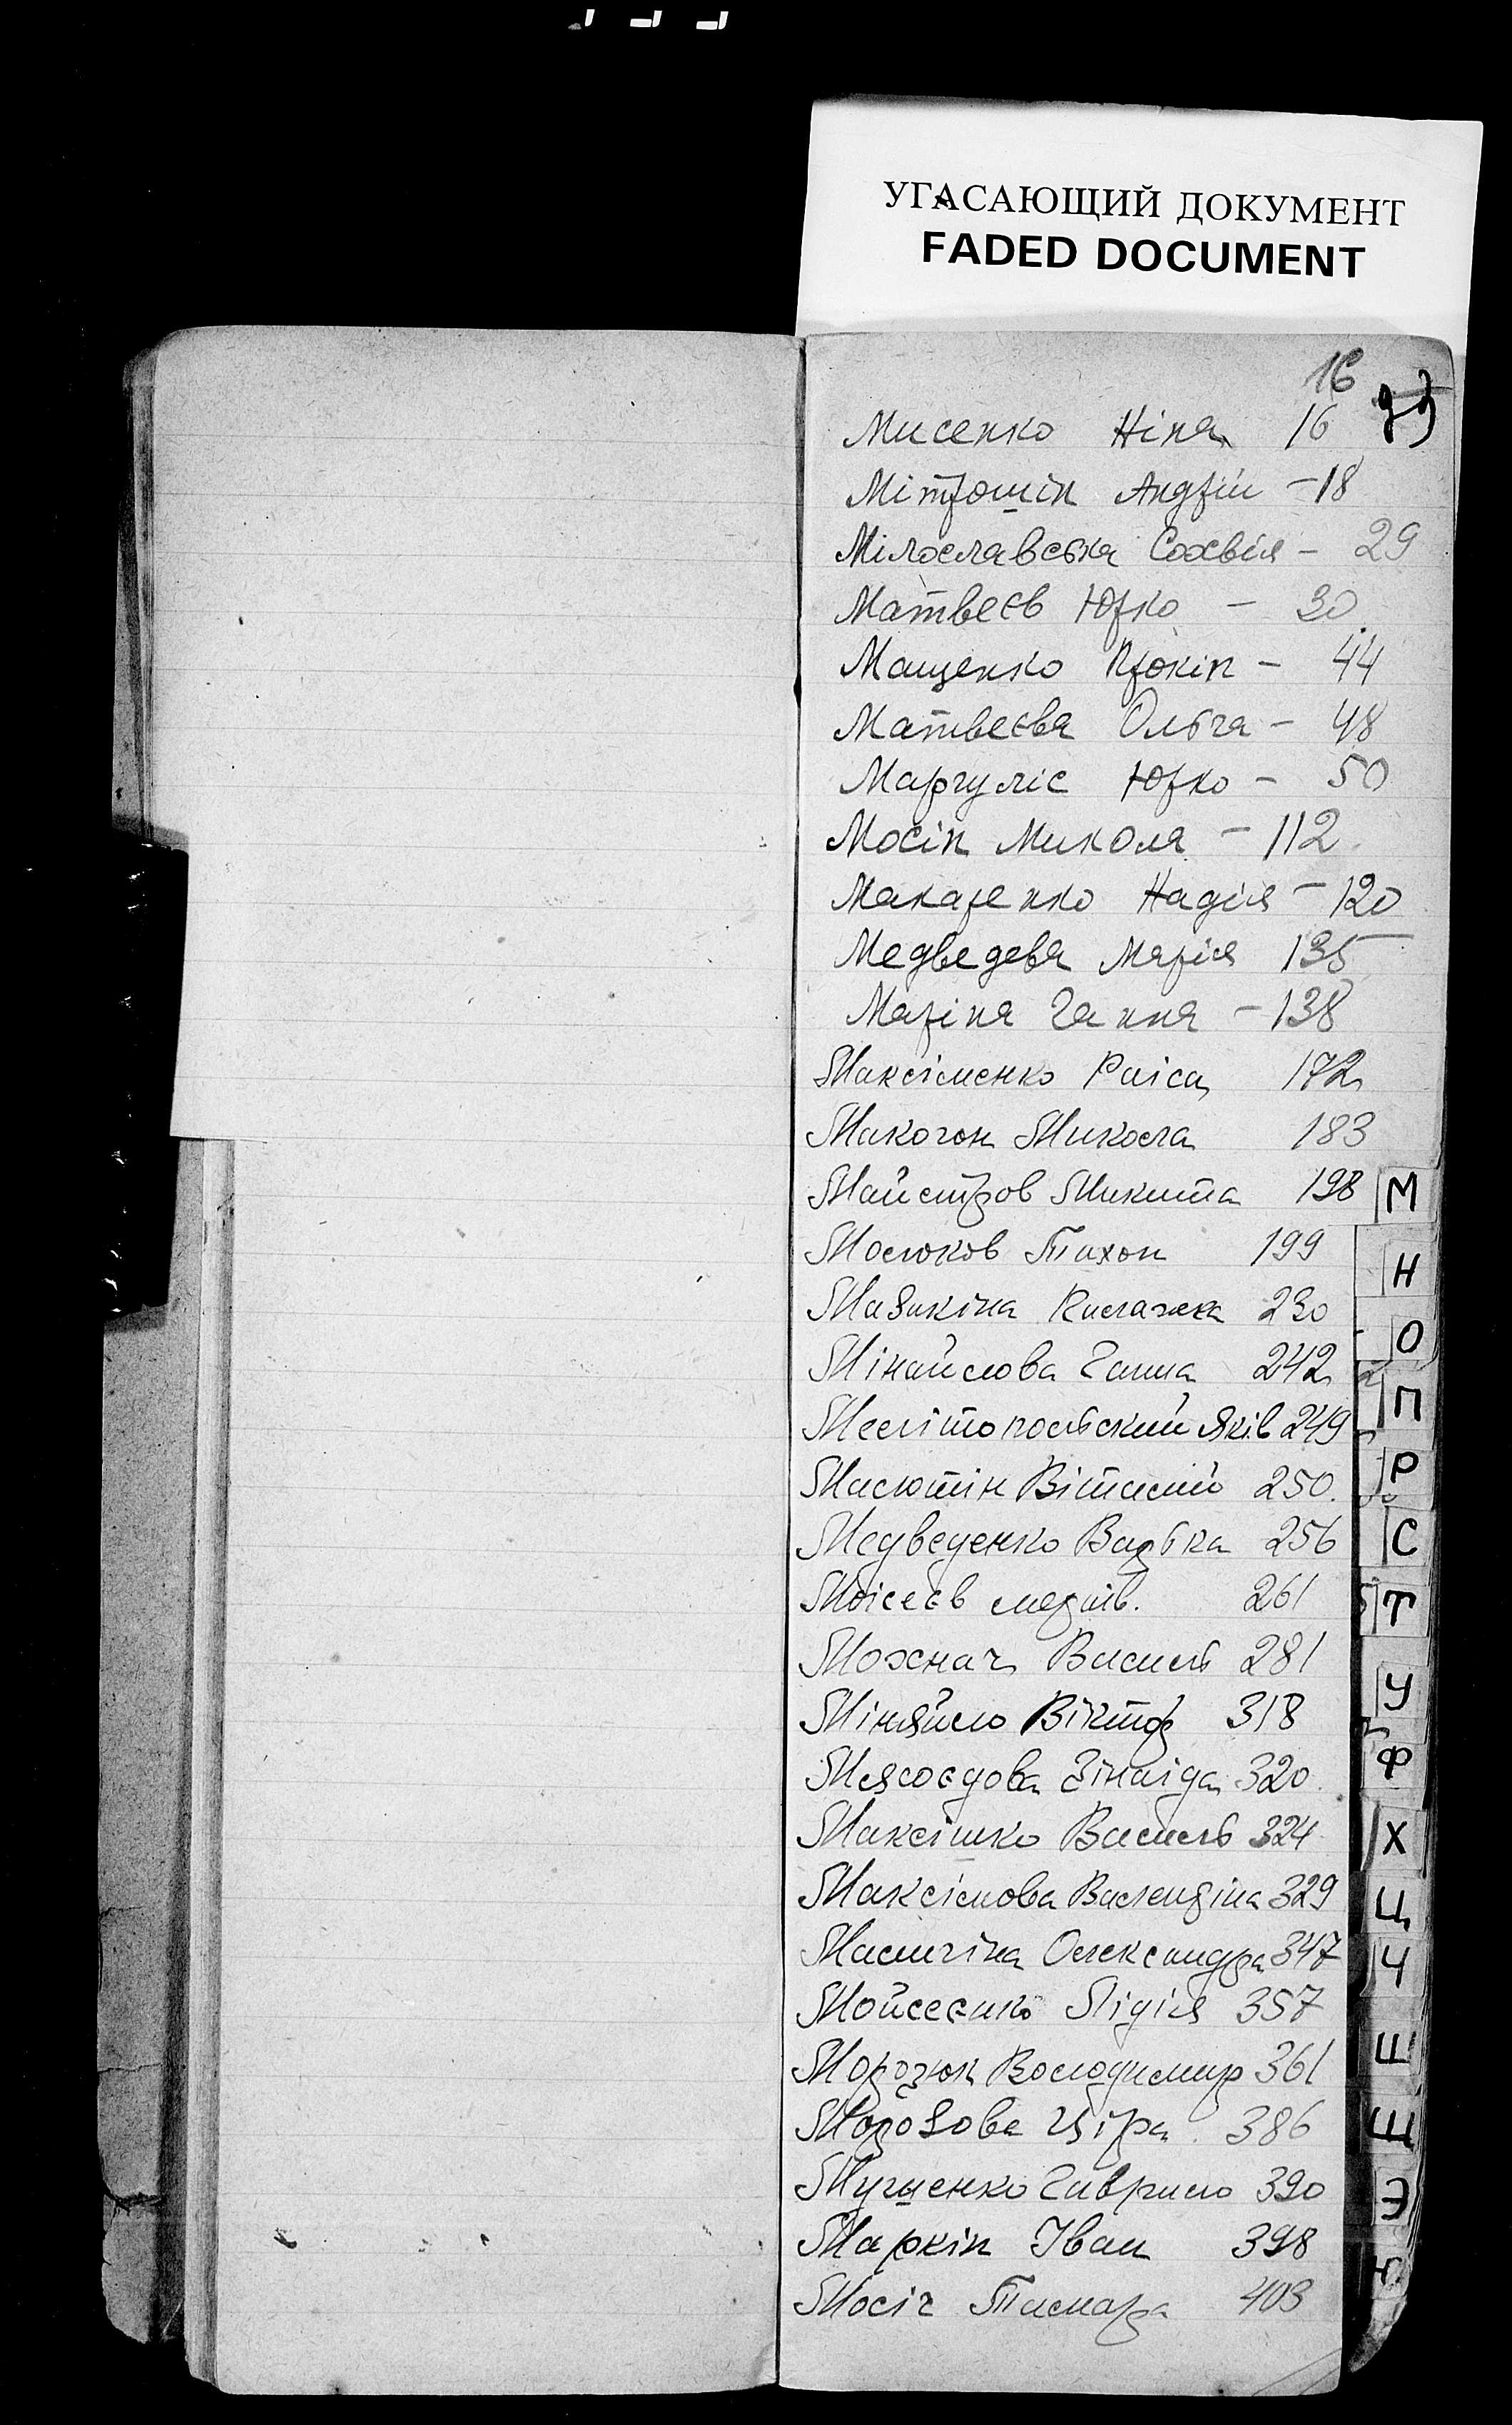 УГАСАЮЩИЙ ДОКУМЕНТ
FADED DOCUMENT
16
Мисенко Ніна 16
Мітрошін Андрій - 18
Мілославська Софвія - 29
Матвеєв Юрко - 30
Мащенко Прокіп - 44
Матвеєва Ольга - 48
Маргуліс Юрко - 50
Мосін Микола - 112
Макаренко Надія - 120
Медведева Марія 135
Маріна Ганна - 138
Максіменко Раіса 172
Макогон Микола 183
Майстров Микита 198
Мослюков Тихон 199
Мазикіна 230
Мінайлова Ганна 242
Мелітопольский Яків 249
Масютін Віталий 250
Медведенко Варька 256
Моісеєв мертв. 261
Мохнач Василь 281
Міняйло Віктор 318
Мясоєдова Зінаіда 320
Максімко Василь 324
Максімова Валентіна 329
Олександра 347
Мойсеєнко Лідія 357
Володимир 361
Морозова Ціра 386
Гаврило 390
Маркін Іван 398
Мосіг Тамара 403
М
Н
О
П
Р
С
Т
У
Ф
Х
Ц
Ч
Ш
Щ
Э